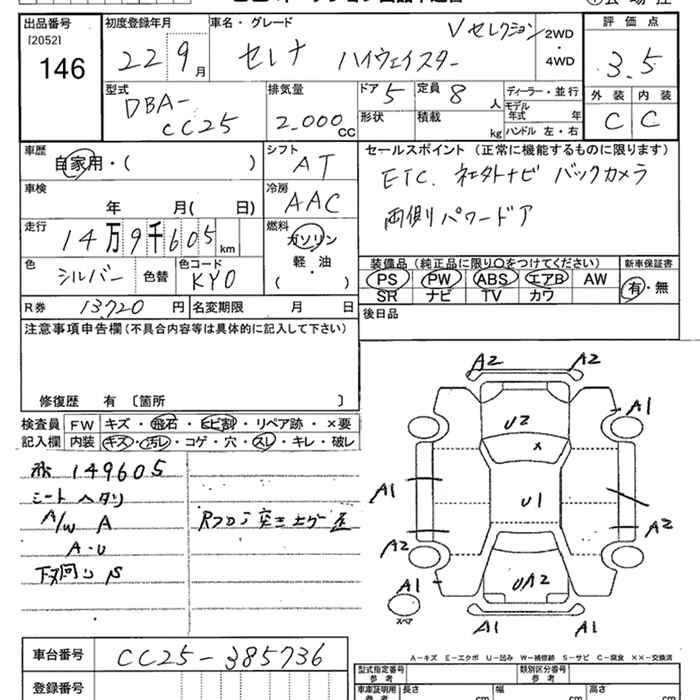 出品番号
[2052]
146
初度登録年月
22 9月
車名・グレード
Vセレクション
セレナ ハイウェイスター
2WD
・
4WD
評価点
3.5
型式
DBA-
CC25
排気量
2.000cc
ドア 5
定員 8人
形状
積載 kg
ディーラー・並行
モデル年式 年
ハンドル 左・右
外装 内装
C C
車歴
自家用・( )
シフト
AT
セールスポイント (正常に機能するものに限ります)
ETC. ナビ バックカメラ
両側パワードア
車検
年 月( 日)
冷房
AAC
走行
14万9千605km
燃料
ガソリン
軽・油
( )
色
シルバー
色替
色コード
KY0
装備品 (純正品に限り○をつけてください)
PS PW ABS エアB AW
SR ナビ TV カワ
新車保証書
有・無
R券 13720円
名変期限 月 日
後日品
注意事項申告欄(不具合内容等は具体的に記入して下さい)
修復歴 有 〔箇所 〕
検査員
記入欄
FW キズ・飛石・ヒビ割・リペア跡・×要
内装 キズ・汚レ・コゲ・穴・スレ・キレ・破レ
149605
シートヘタリ
A/W A
A・U
下回りS
A2 A2
A1
U2
×
A1
U1
A2
A2
A1
UA2
スペア
A1 A1
A−キズ E−エクボ U−凹み W−補修跡 S−サビ C−腐食 ××−交換済
車台番号 CC25-385736
登録番号
型式指定番号
参考
類別区分番号
参考
車庫証明用
参考
長さ cm
幅 cm
高さ cm